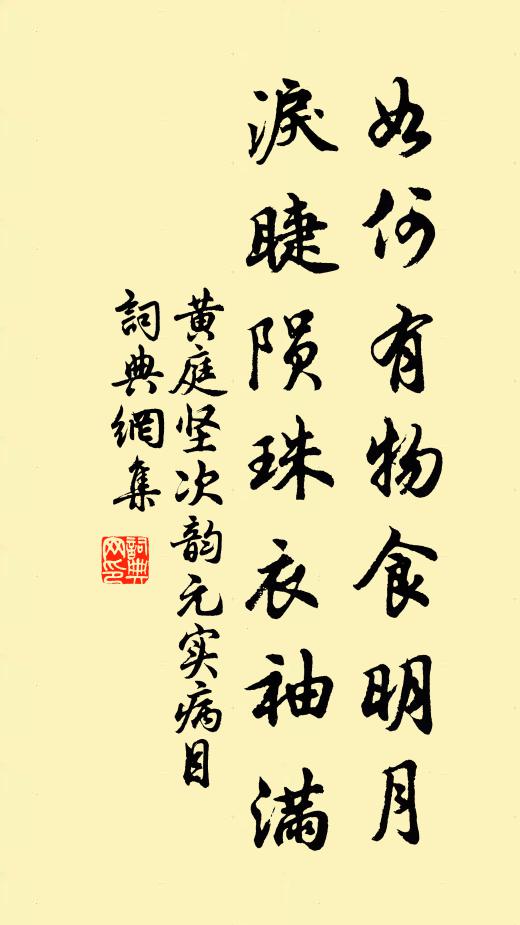 如何有物食明月
淚睫陨珠衣袖滿
黄庭坚次韵元实病目
詞典網集
詞典
网印